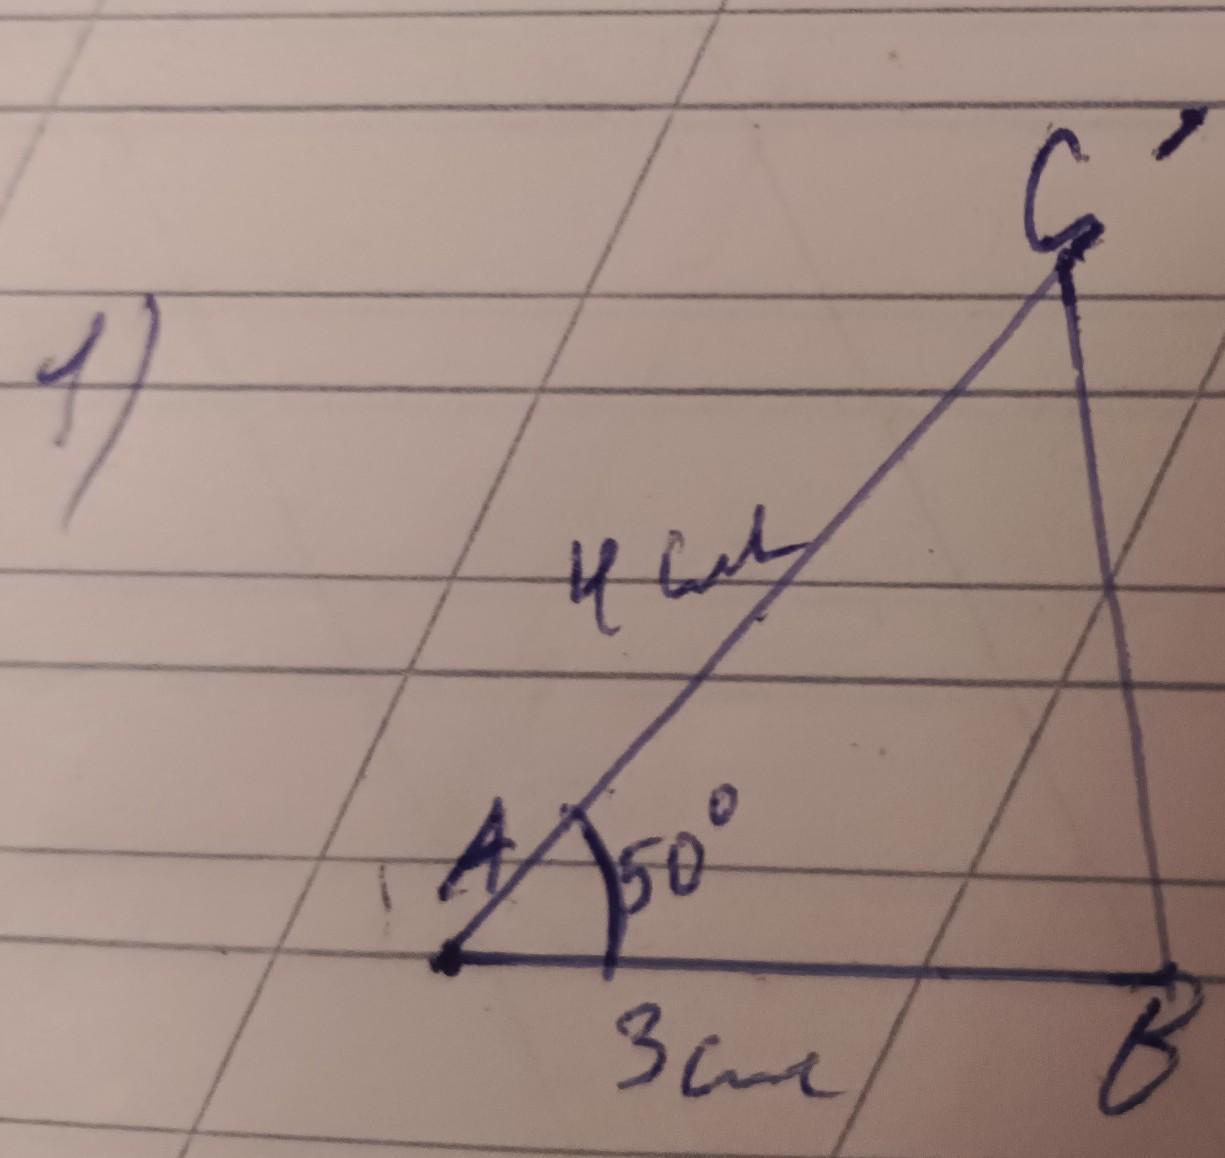 1)
C
4 см
A
50°
3 см
B